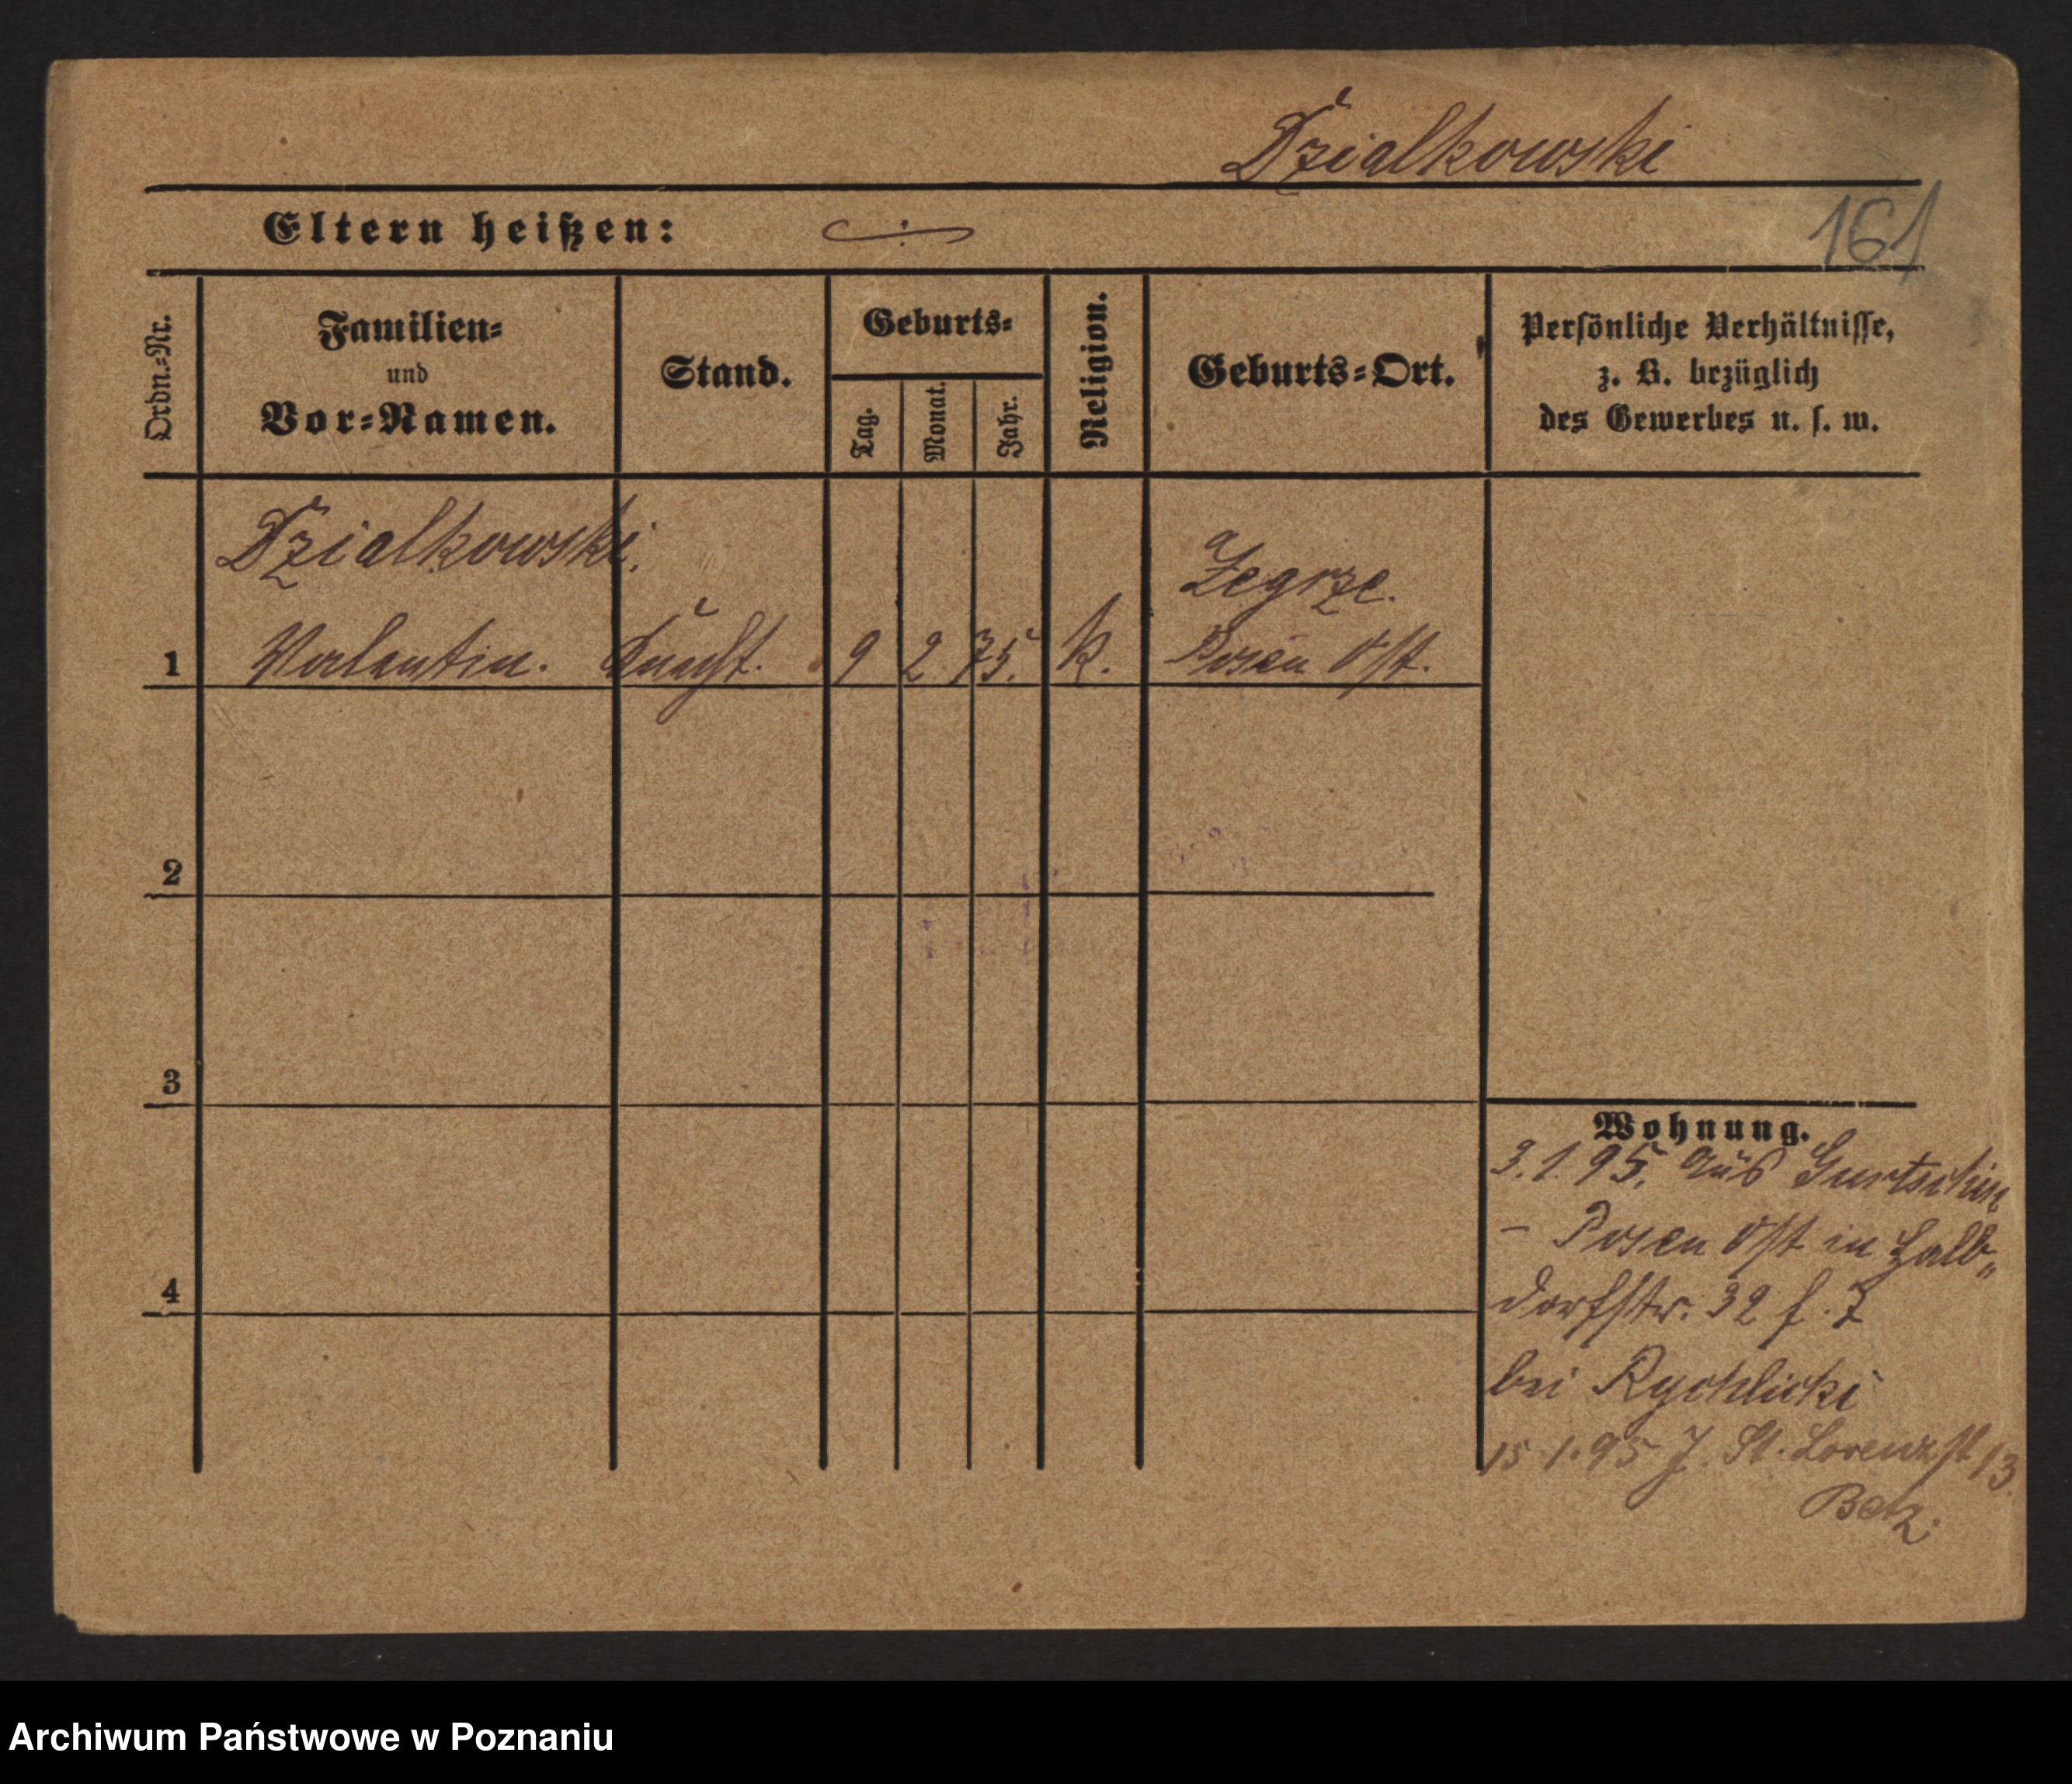 Dzialkowski
Eltern heißen:
161
Ordn.=Nr.
Familien=
und
Vor=Namen.
Stand.
Geburts=
Tag.
Monat.
Jahr.
Religion.
Geburts=Ort.
Persönliche Verhältnisse,
z. B. bezüglich
des Gewerbes u. s. w.
Dzialkowski.
Zegrze.
1 Valentin. Knecht. 9 2 75. k. Posen Ost.
2
3
4
Wohnung.
3.1.95. aus Gurtschin
- Posen Ost in Halb„
dorfstr. 32
bei Rychlicki
15.1.95 J. St. Lorenzst 13
Archiwum Państwowe w Poznaniu